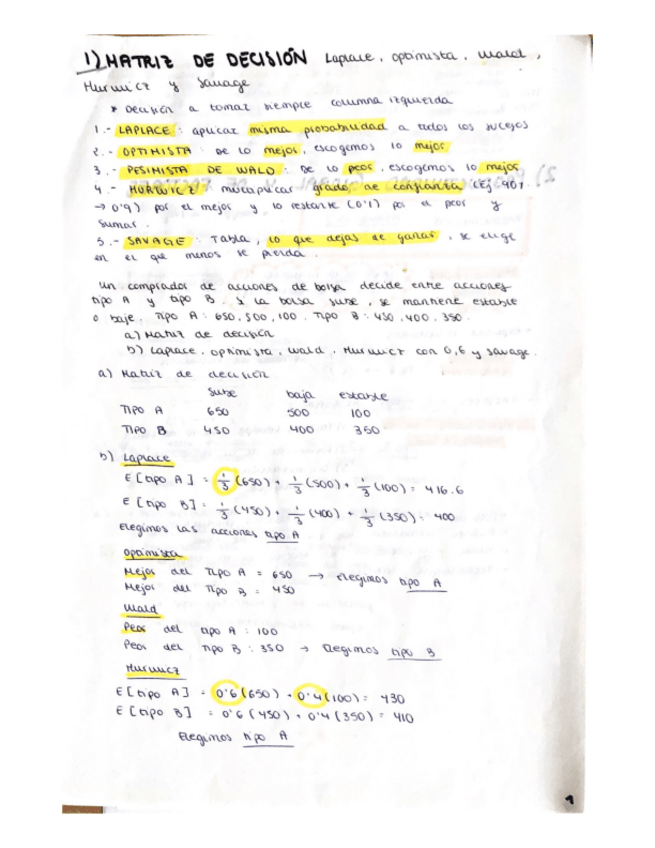 1) MATRIZ DE DECISIÓN Laplace, optimista, Wald,
Hurwicz y Savage
* Decisión a tomar siempre columna izquierda
1.- LAPLACE: aplicar misma probabilidad a todos los sucesos
2.- OPTIMISTA: De lo mejor, escogemos lo mejor
3.- PESIMISTA DE WALD: De lo peor, escogemos lo mejor
4.- HURWICZ: multiplicar grado de confianza (Ej 90%
→ 0'9) por el mejor y lo restante (0'1) por el peor y
sumar.
5.- SAVAGE: Tabla, lo que dejas de ganar, se elige
en el que menos se pierda.
Un comprador de acciones de bolsa decide entre acciones
tipo A y tipo B. Si la bolsa sube, se mantiene estable
o baje. Tipo A: 650, 500, 100. Tipo B: 450, 400, 350.
a) Matriz de decisión
b) Laplace, optimista, Wald, Hurwicz con 0,6 y Savage.
a) Matriz de decisión
Sube baja estable
TIPO A 650 500 100
TIPO B 450 400 350
b) Laplace
E [tipo A] = 1/3 (650) + 1/3 (500) + 1/3 (100) = 416.6
E [tipo B] = 1/3 (450) + 1/3 (400) + 1/3 (350) = 400
Elegimos las acciones tipo A
Optimista
Mejor del Tipo A = 650 → Elegimos tipo A
Mejor del Tipo B = 450
Wald
Peor del tipo A : 100
Peor del Tipo B : 350 → Elegimos tipo B
Hurwicz
E [tipo A] = 0'6 (650) + 0'4 (100) = 430
E [tipo B] = 0'6 (450) + 0'4 (350) = 410
Elegimos tipo A
1